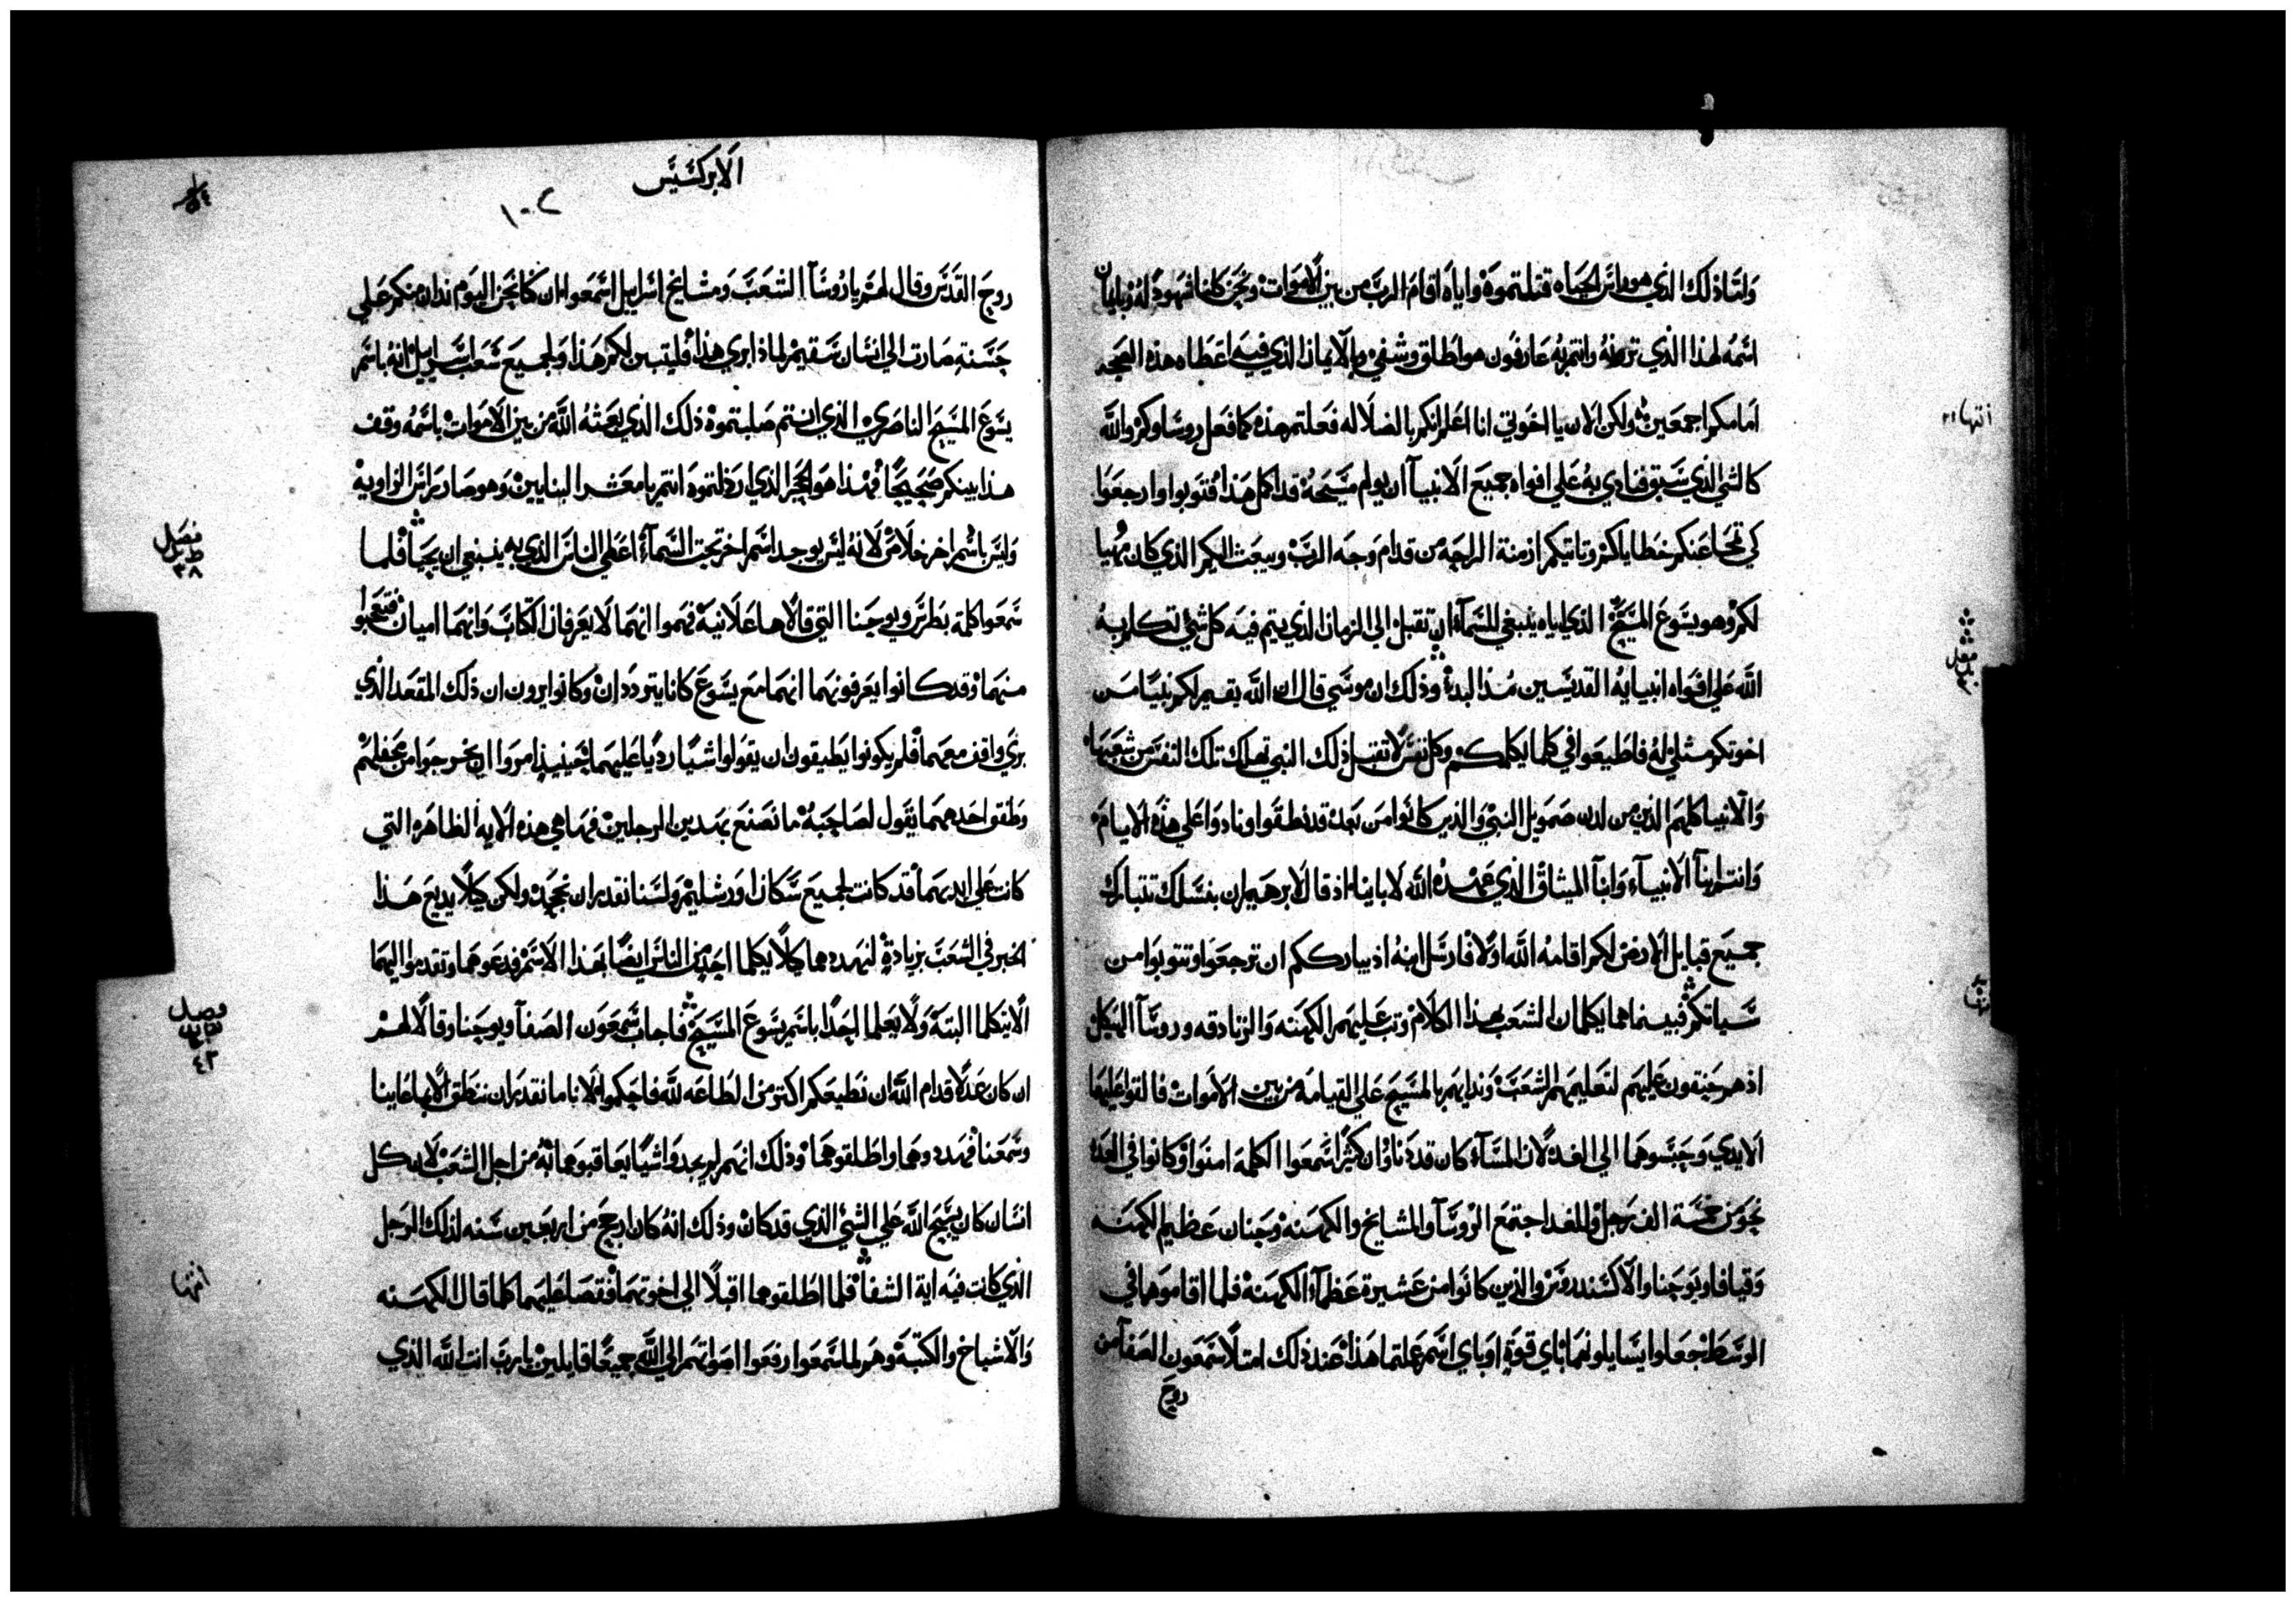 ولتاذلك الذي هو راس الحياه قتلتموة واياه اقام الرب من بين الاموات ونحن كلنا شهود له وبايمان
اسمه لهذا الذي ترونه وانتم به عارفون هو اطلق وشفي والايمان الذي فيه اعطاه هذه الصحه
امامكم اجمعين ولكن الان يا اخوتي انا اعلم انكم بالضلاله فعلتم هذه كما فعل روساوكم والله
كالشي الذي سبق فنادي به علي افواه جميع الانبيآ ان يولم مسيحه قد اكمل هذا فتوبوا وارجعوا
كي تمحا عنكم خطاياكم وتاتيكم ازمنة الراحه من قدام وجه الرب ويبعث اليكم الذي كان مهيا
لكم وهو يسوع المسيح الذي اياه ينبغي للسمآء ان تقبل الي الزمان الذي يتم فيه كل شي تكلم به
الله علي افواه انبيايه القديسين منذ البدء وذلك ان موسي قال ان الله يقيم لكم نبيا من
اخوتكم مثلي له فاطيعوا في كلما يكلمكم وكل نفس لا تقبل ذلك النبي تهلك تلك النفس من شعبها
والانبيا كلهم الذين من لدن صمويل النبي والذين كانوا من بعده قد نطقوا ونادوا علي هذه الايام
وانتم ابنآ الانبيآء وابنآ الميثاق الذي عهده الله لاباينا اذ قال لابرهيم ان بنسلك تتبارك
جميع قبايل الارض لكم اقامه الله اولا فارسل ابنه اذ يبارككم ان ترجعوا وتتوبوا من
سياتكم فبينما هما يكلمان الشعب بهذا الكلام وثب عليهم الكهنه والزنادقه وروسآ الهيكل
اذ هم حنقون عليهم لتعليمهم الشعب وندايهم بالمسيح علي القيامه من بين الاموات فالقوا عليهما
الايدي وحبسوهما الي الغد لان المسآء كان قد دنا وان كثيرا سمعوا الكلمة امنوا وكانوا في العدة
نحو من خمسة الف رجل وللغد اجتمع الروسآ والمشايخ والكهنه وحنان عظيم الكهنه
وقيافا ويوحنا والاكسندروس والذين كانوا من عشيرة عظمآء الكهنه فلما اقاموهما في
الوسط جعلوا يسايلونهما باي قوة او باي اسم عملتما هذا عند ذلك امتلا سمعون الصفا من
روح
انتها ٢١
فصل
الابركسيس
١٠٢
روح القدس وقال لهم يا روسآ الشعب ومشايخ اسراييل اسمعوا ان كنا نحن اليوم ندان منكم علي
حسنة صارت الي انسان سقيم لماذا بري هذا فليتبين لكم هذا ولجميع شعب اسراييل انه باسم
يسوع المسيح الناصري الذي انتم صلبتموة ذلك الذي بعثه الله من بين الاموات باسمه وقف
هذا بينكم صحيحا فهذا هو الحجر الذي ارذلتموه انتم يا معشر البنايين وهو صار راس الزاويه
وليس باسم اخر خلاص لانه ليس يوجد اسم اخر تحت السمآء اعطي الناس الذي به ينبغي ان يحيا فلما
سمعوا كلمة بطرس ويوحنا التي قالاها علانية فهموا انهما لا يعرفان الكتاب وانهما اميان فتعجبوا
منهما وقد كانوا يعرفونهما انهما مع يسوع كانا يترددان وكانوا يرون ان ذلك المقعد الذي
بري واقف معهما فلم يكونوا يطيقون ان يقولوا شيا رديا عليهما حينيذ امروا ان يخرجوا من محفلهم
وطفق احدهما يقول لصاحبه ما نصنع بهدين الرجلين فهاهي هذه الايه الظاهره التي
كانت علي ايديهما قد كانت لجميع سكان اورشليم ولسنا نقدر ان نجحد ولكن كيلا يديع هذا
الخبر في الشعب بزيادة لنهددهما كيلا يكلما احد من الناس ايضا بهذا الاسم فدعوهما وتقدموا اليهما
الا يتكلما البتة ولا يعلما احدا باسم يسوع المسيح فاجاب سمعون الصفآ ويوحنا وقالا لهم
ان كان عدلا قدام الله ان نطيعكم اكتر من الطاعه لله فاحكموا لانا ما نقدر ان ننطق الا بما عاينا
وسمعنا فهددوهما واطلقوهما وذلك انهم لم يجدوا شيا يعاقبوهما به من اجل الشعب لان كل
انسان كان يسبح الله علي الشي الذي قد كان وذلك انه كان ارجح من اربعين سنه لذلك الرجل
الذي كانت فيه اية الشفا فلما اطلقوهما اقبلا الي اخوتهما فقصا عليهما كلما قال الكهنه
والاشياخ والكتبة وهم لما سمعوا رفعوا اصواتهم الي الله جميعا قايلين يا رب انت الله الذي
فصل
٣٨
فصل
٤٢
انتها